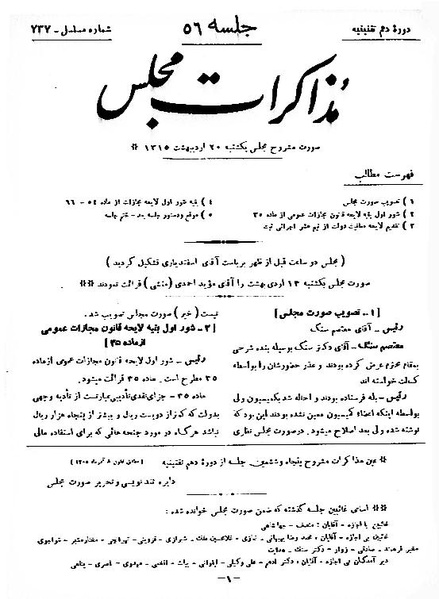 دورهٔ دهم تقنینیه
جلسه ۵۶
شماره مسلسل - ۷۳۷
مذاکرات مجلس
صورت مشروح مجلس یکشنبه ۲۰ اردیبهشت ۱۳۱۵ *
فهرست مطالب
۱) تصویب صورت مجلس
۲) شور اول لایحه قانون مجازات عمومی از ماده ۳۵
۳) تقدیم لایحه معافیت دولت از نیم عشر اجرائی ثبت
۴) بقیه شور اول لایحه مجازات از ماده ۵۴ - ۶۶
۵) موقع و دستور جلسه بعد - ختم جلسه
(مجلس دو ساعت قبل از ظهر بریاست آقای اسفندیاری تشکیل گردید)
صورت مجلس یکشنبه ۱۳ اردیبهشت را آقای مؤید احمدی (منشی) قرائت نمودند **
[۱ - تصویب صورت مجلس]
رئیس - آقای معتصم سنگ
معتصم سنگ - آقای دکتر سنگ بوسیله بنده شرحی
بمقام محترم عرض کرده بودند و عذر حضورشان را بواسطه
کسالت خواسته اند
رئیس - بله فرستاده بودند و احاله شد بکمیسیون ولی
بواسطه اینکه اعضاء کمیسیون معین نشده بودند این بود که
نوشته شده ولی بعد اصلاح میشود. در صورت مجلس نظری
نیست (خیر) صورت مجلس تصویب شد.
[۲ - شور اول بقیه لایحه قانون مجازات عمومی
از ماده ۳۵]
رئیس - شور اول لایحه مجازات عمومی از ماده
۳۵ مطرح است. ماده ۳۵ قرائت میشود.
ماده ۳۵ - جزای نقدی تأدیبی عبارتست از تأدیه وجهی
بدولت که کمتر از دویست ریال و بیشتر از پنجاه هزار ریال
نباشد هرگاه در مورد جنحه هائی که برای استفاده مالی
* عین مذاکرات مشروح پنجاه و ششمین جلسه از دوره دهم تقنینیه
دایره تندنویسی و تحریر صورت مجلس
** اسامی غائبین جلسه گذشته که ضمن صورت مجلس خوانده شده:
غائبین با اجازه - آقایان:
غائبین بی اجازه - آقایان:
دیر آمدگان بی اجازه - آقایان: دکتر ادهم
-۱-